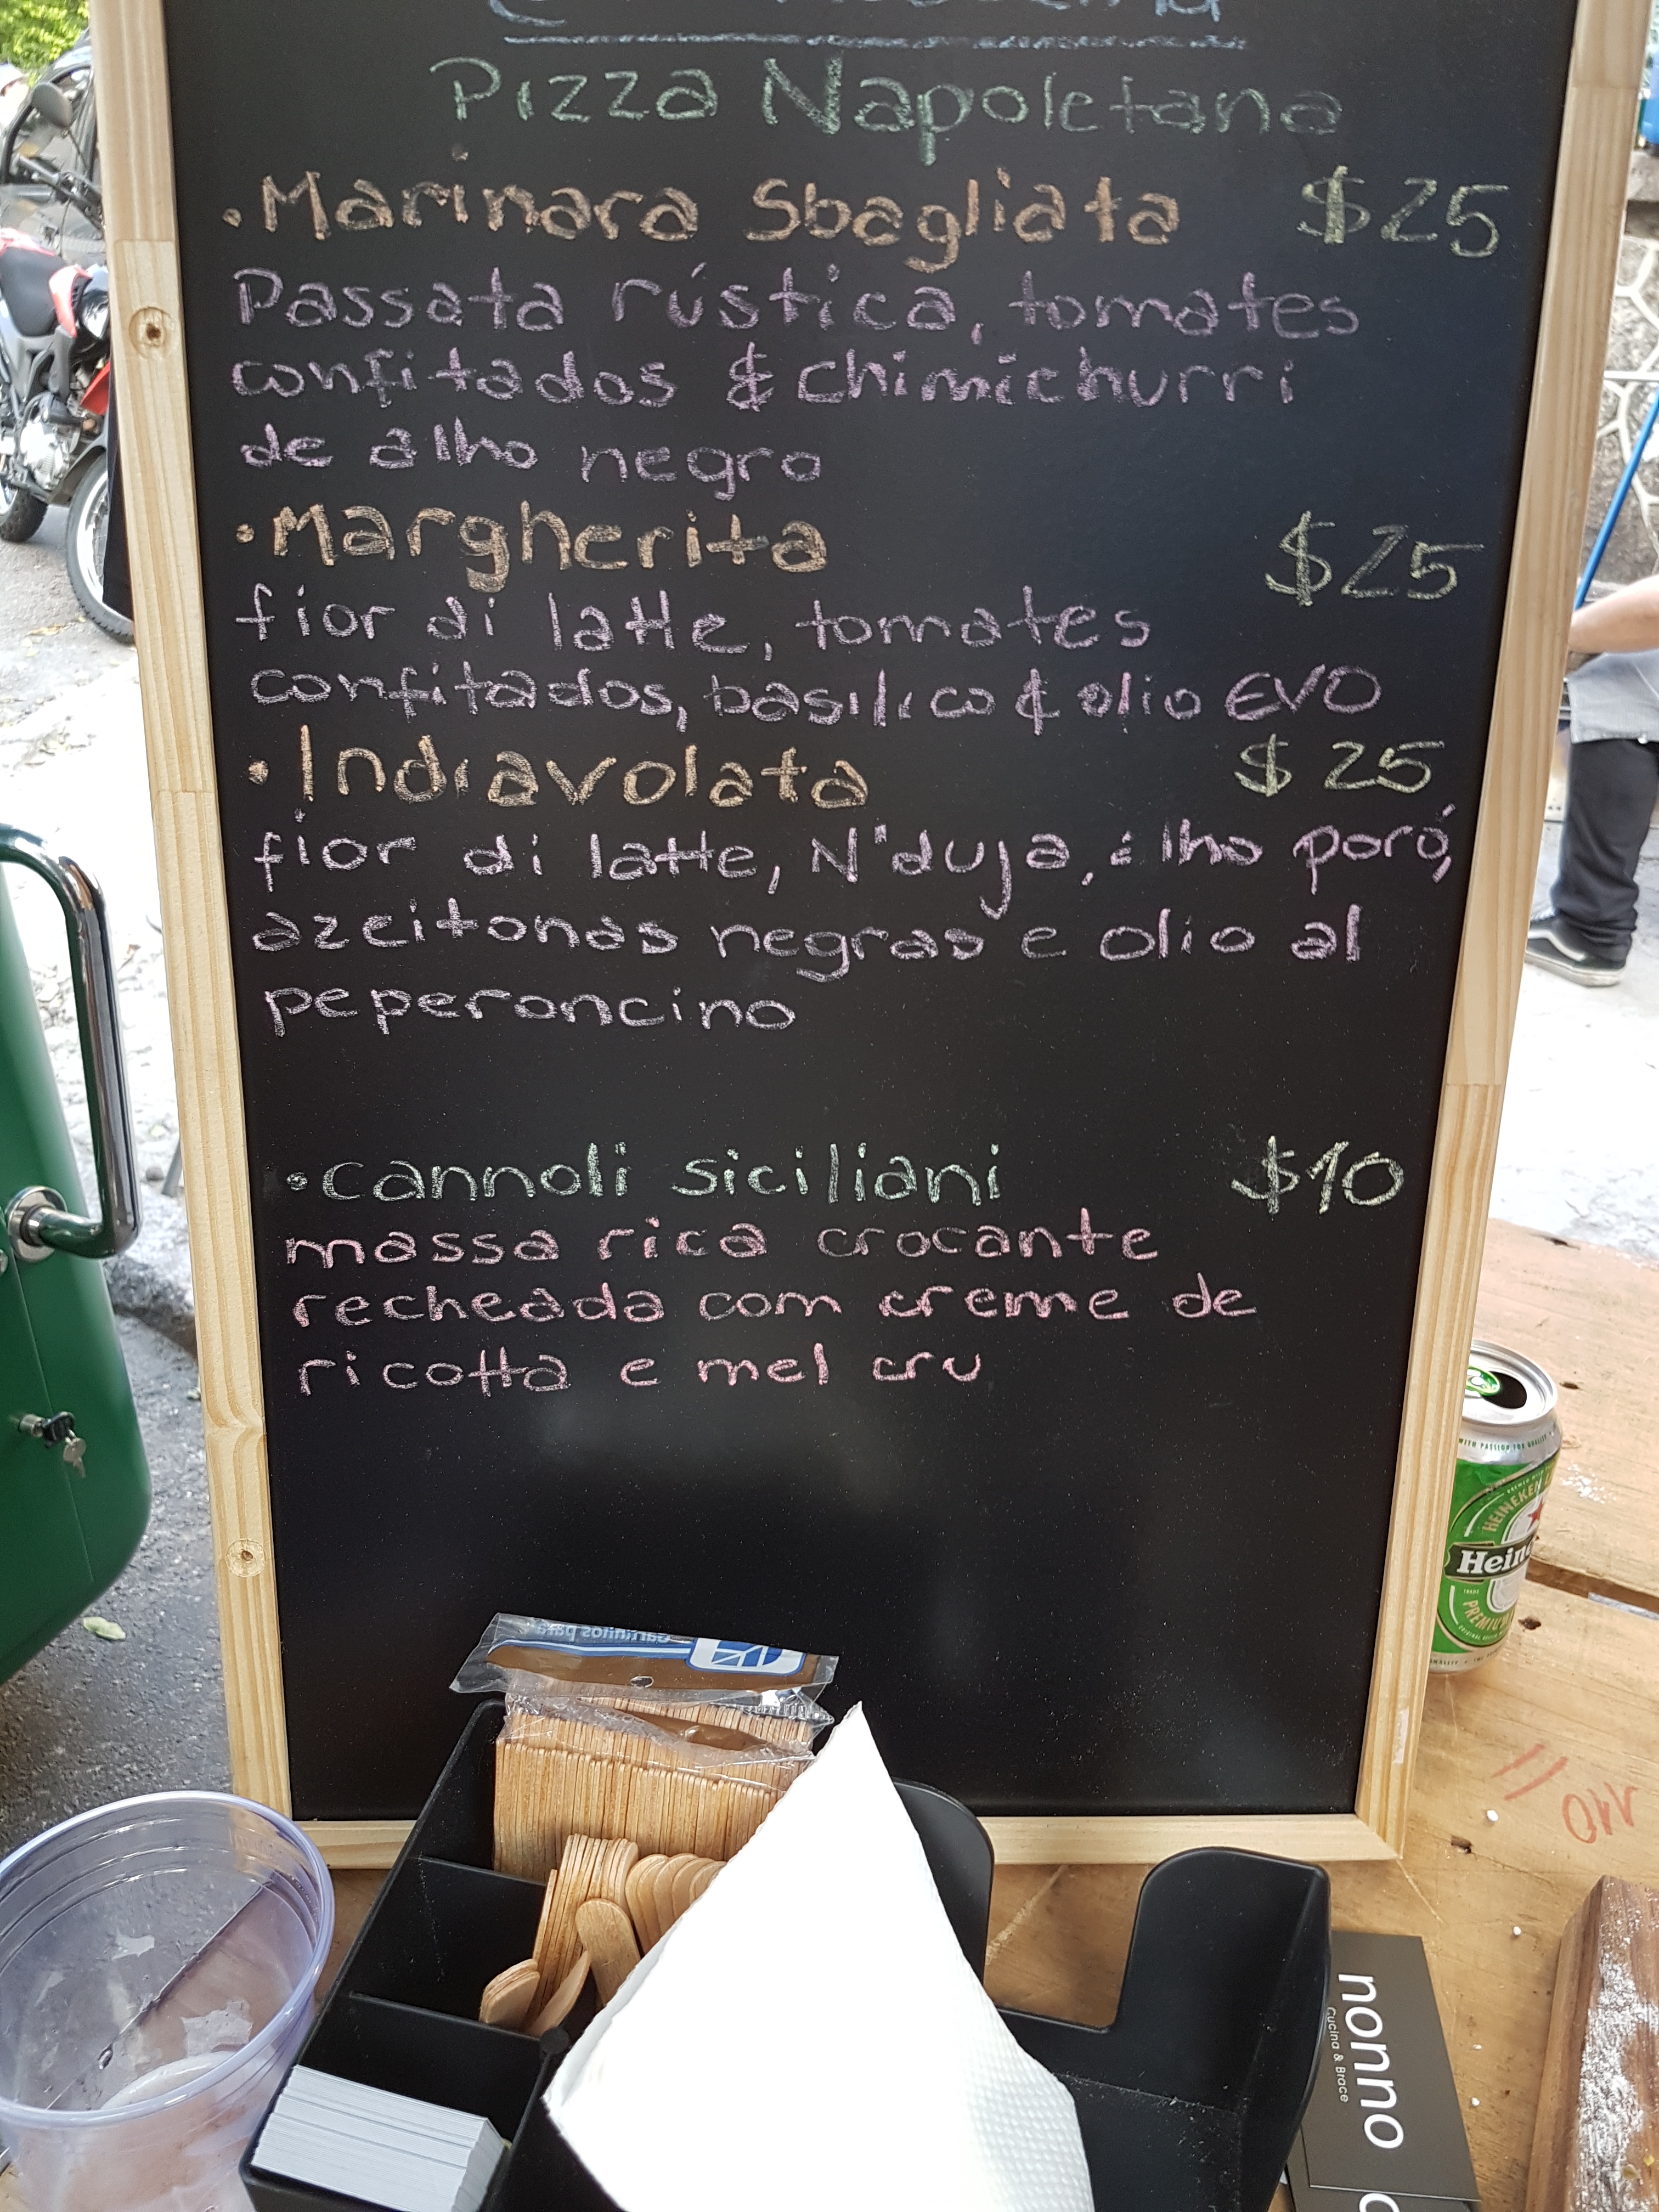 Pizza Napoletana
•Marinara Sbagliata $25
Passata rústica, tomates
confitados & chimichurri
de alho negro
•Margherita $25
fior di latte, tomates
confitados, basilico & olio EVO
•Indiavolata $25
fior di latte, N'duja, alho poró,
azeitonas negras e olio al
peperoncino
•cannoli siciliani $10
massa rica crocante
recheada com creme de
ricotta e mel cru
WITH PASSION FOR QUALITY
HEINEKEN
PREMIUM
nonno
Cucina & Brace